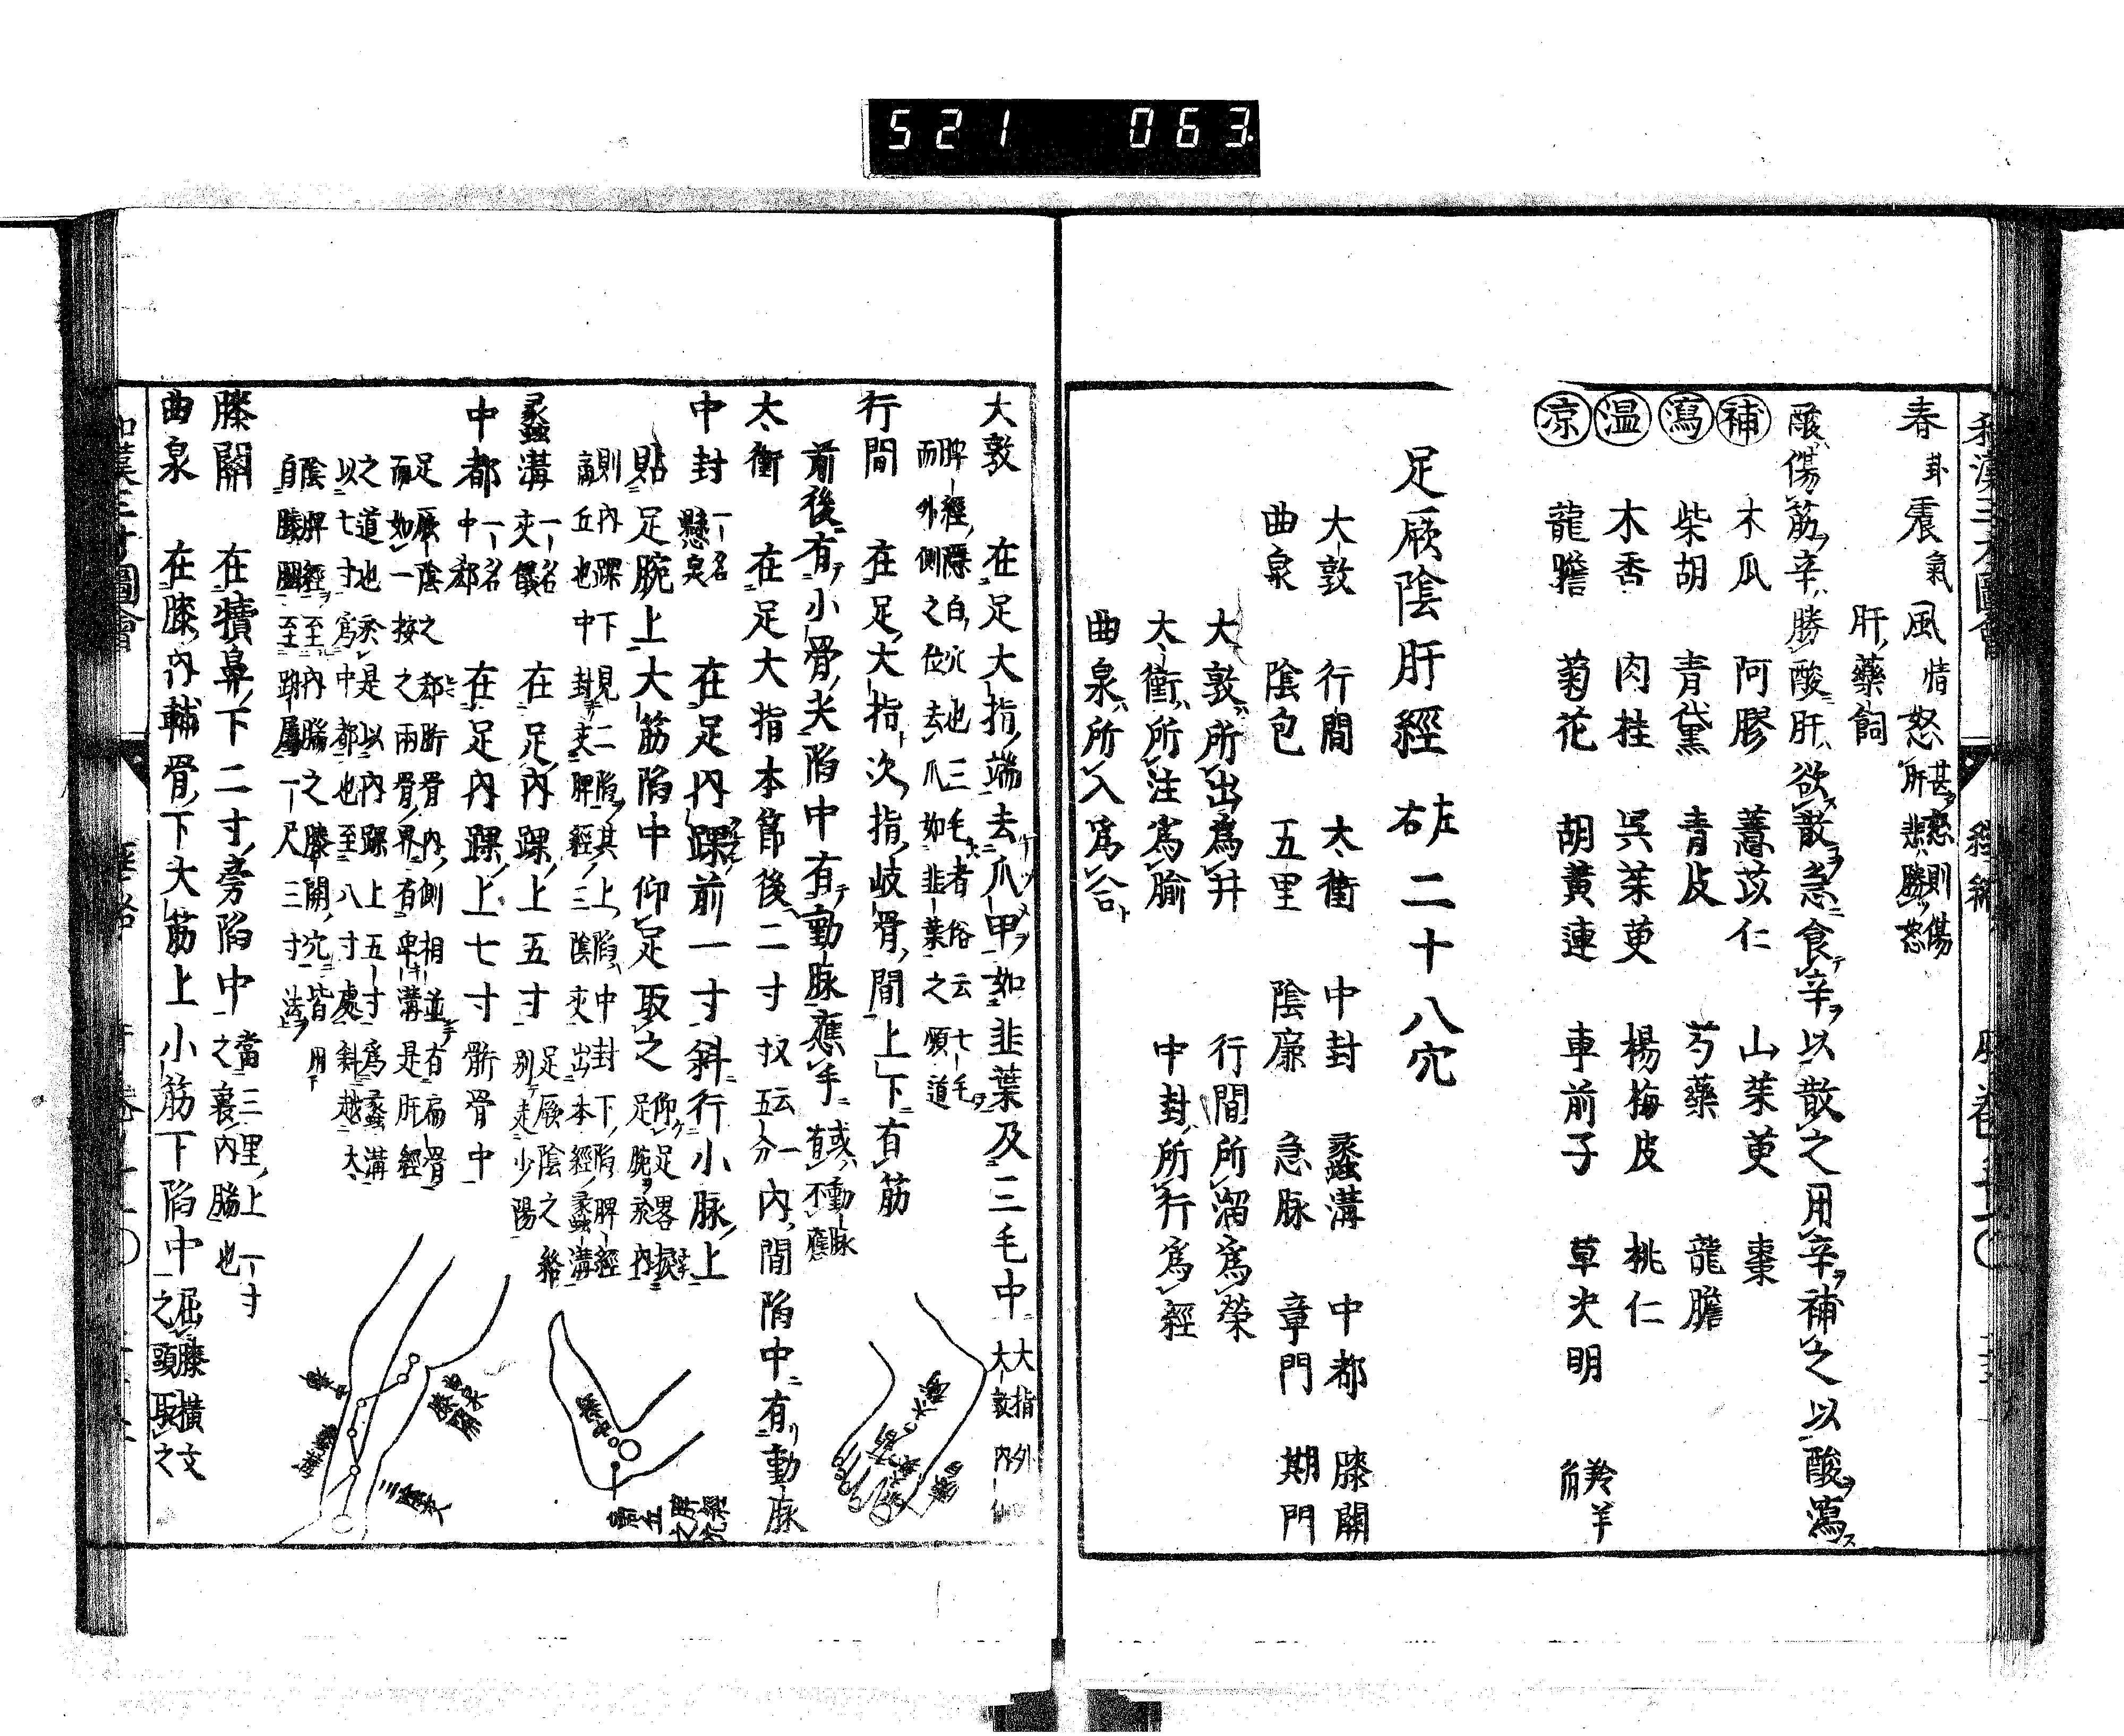 521 063
春 卦震 氣風 情怒 甚怒則傷肝悲勝怒
肝藥飼
酸傷筋辛勝酸肝欲散急食辛以散之用辛補之以酸瀉
補 木瓜 阿膠 薏苡仁 山茱萸 棗
瀉 柴胡 青黛 青皮 芍藥 龍膽
温 木香 肉桂 呉茱萸 楊梅皮 桃仁
涼 龍膽 菊花 胡黃連 車前子 草决明 羚羊角
足厥陰肝經 左右 二十八穴
大敦 行間 太衝 中封 蠡溝 中都 膝關
曲泉 陰包 五里 陰廉 急脉 章門 期門
大敦所出為井 行間所溜為滎
太衝所注為腧 中封所行為經
曲泉所入為合
大敦 在足大指端去爪甲如韭葉及三毛中 大指外大敦内
脾經隱白穴也三毛者俗云七毛
而外側之位去爪如韭葉之順道
行間 在足大指次指岐骨間上下有筋
前後有小骨夹陷中有動脉應手 或有不動脉應
太衝 在足大指本節後二寸 又云一寸五分 内間陷中有動脉
中封 一名懸泉 在足内踝前一寸斜行小脉上
貼足腕上大筋陷中仰足取之 仰足畧挾足腕於内
則内踝下見二陷其上陷中封下陷脾經
商丘也中封夹脾經三陰夹出本經蠡溝
蠡溝 一名交儀 在足内踝上五寸 足厥陰之絡別走少陽
中都 一名中郄 在足内踝上七寸䯒骨中
足厥陰之郄䯒骨内側相並有扁骨
而如一按之兩骨界有卑溝是肝經
之道也於是以内踝上五寸為蠡溝
以七寸為中都也至八寸處斜越太
陰脾經至内腨之膝關穴皆用下
自膝關至跗屬一尺三寸法
膝關 在犢鼻下二寸旁陷中 當三里上一寸之裏内腨也
曲泉 在膝内輔骨下大筋上小筋下陷中 屈膝横文之頭取之
中都
蠡溝
曲泉
膝關
三陰交
中封
商丘
脾經之穴